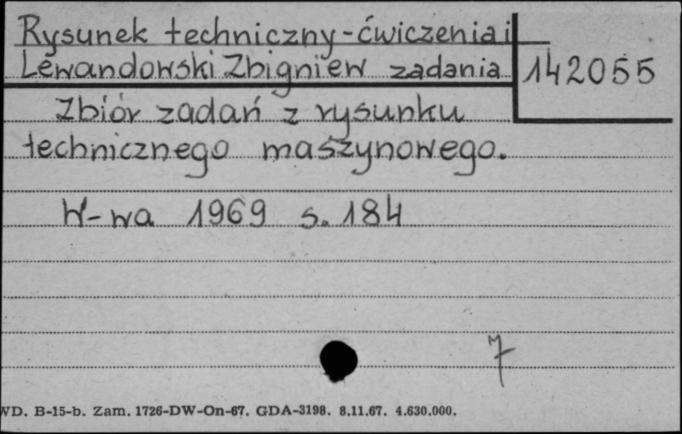 Rysunek techniczny-ćwiczenia i
Lewandowski Zbigniew zadania
142055
Zbiór zadań z rysunku
technicznego maszynowego.
W-wa 1969 s. 184
7
WD. B-15-b. Zam. 1726-DW-On-67. GDA-3198. 8.11.67. 4.630.000.